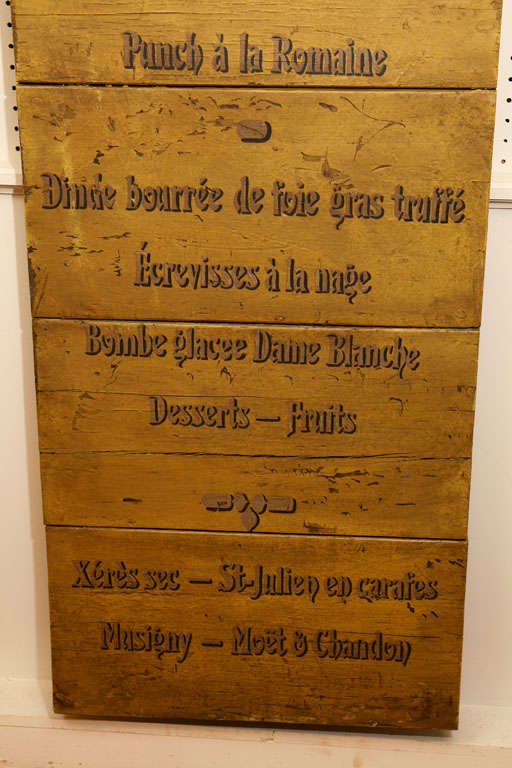 Punch á la Romaine
Dinde bourrée de foie gras truffé
Écrevisses à la nage
Bombe glacee Dame Blanche
Desserts — Fruits
Xérès sec — St-Julien en carafes
Musigny — Moët & Chandon